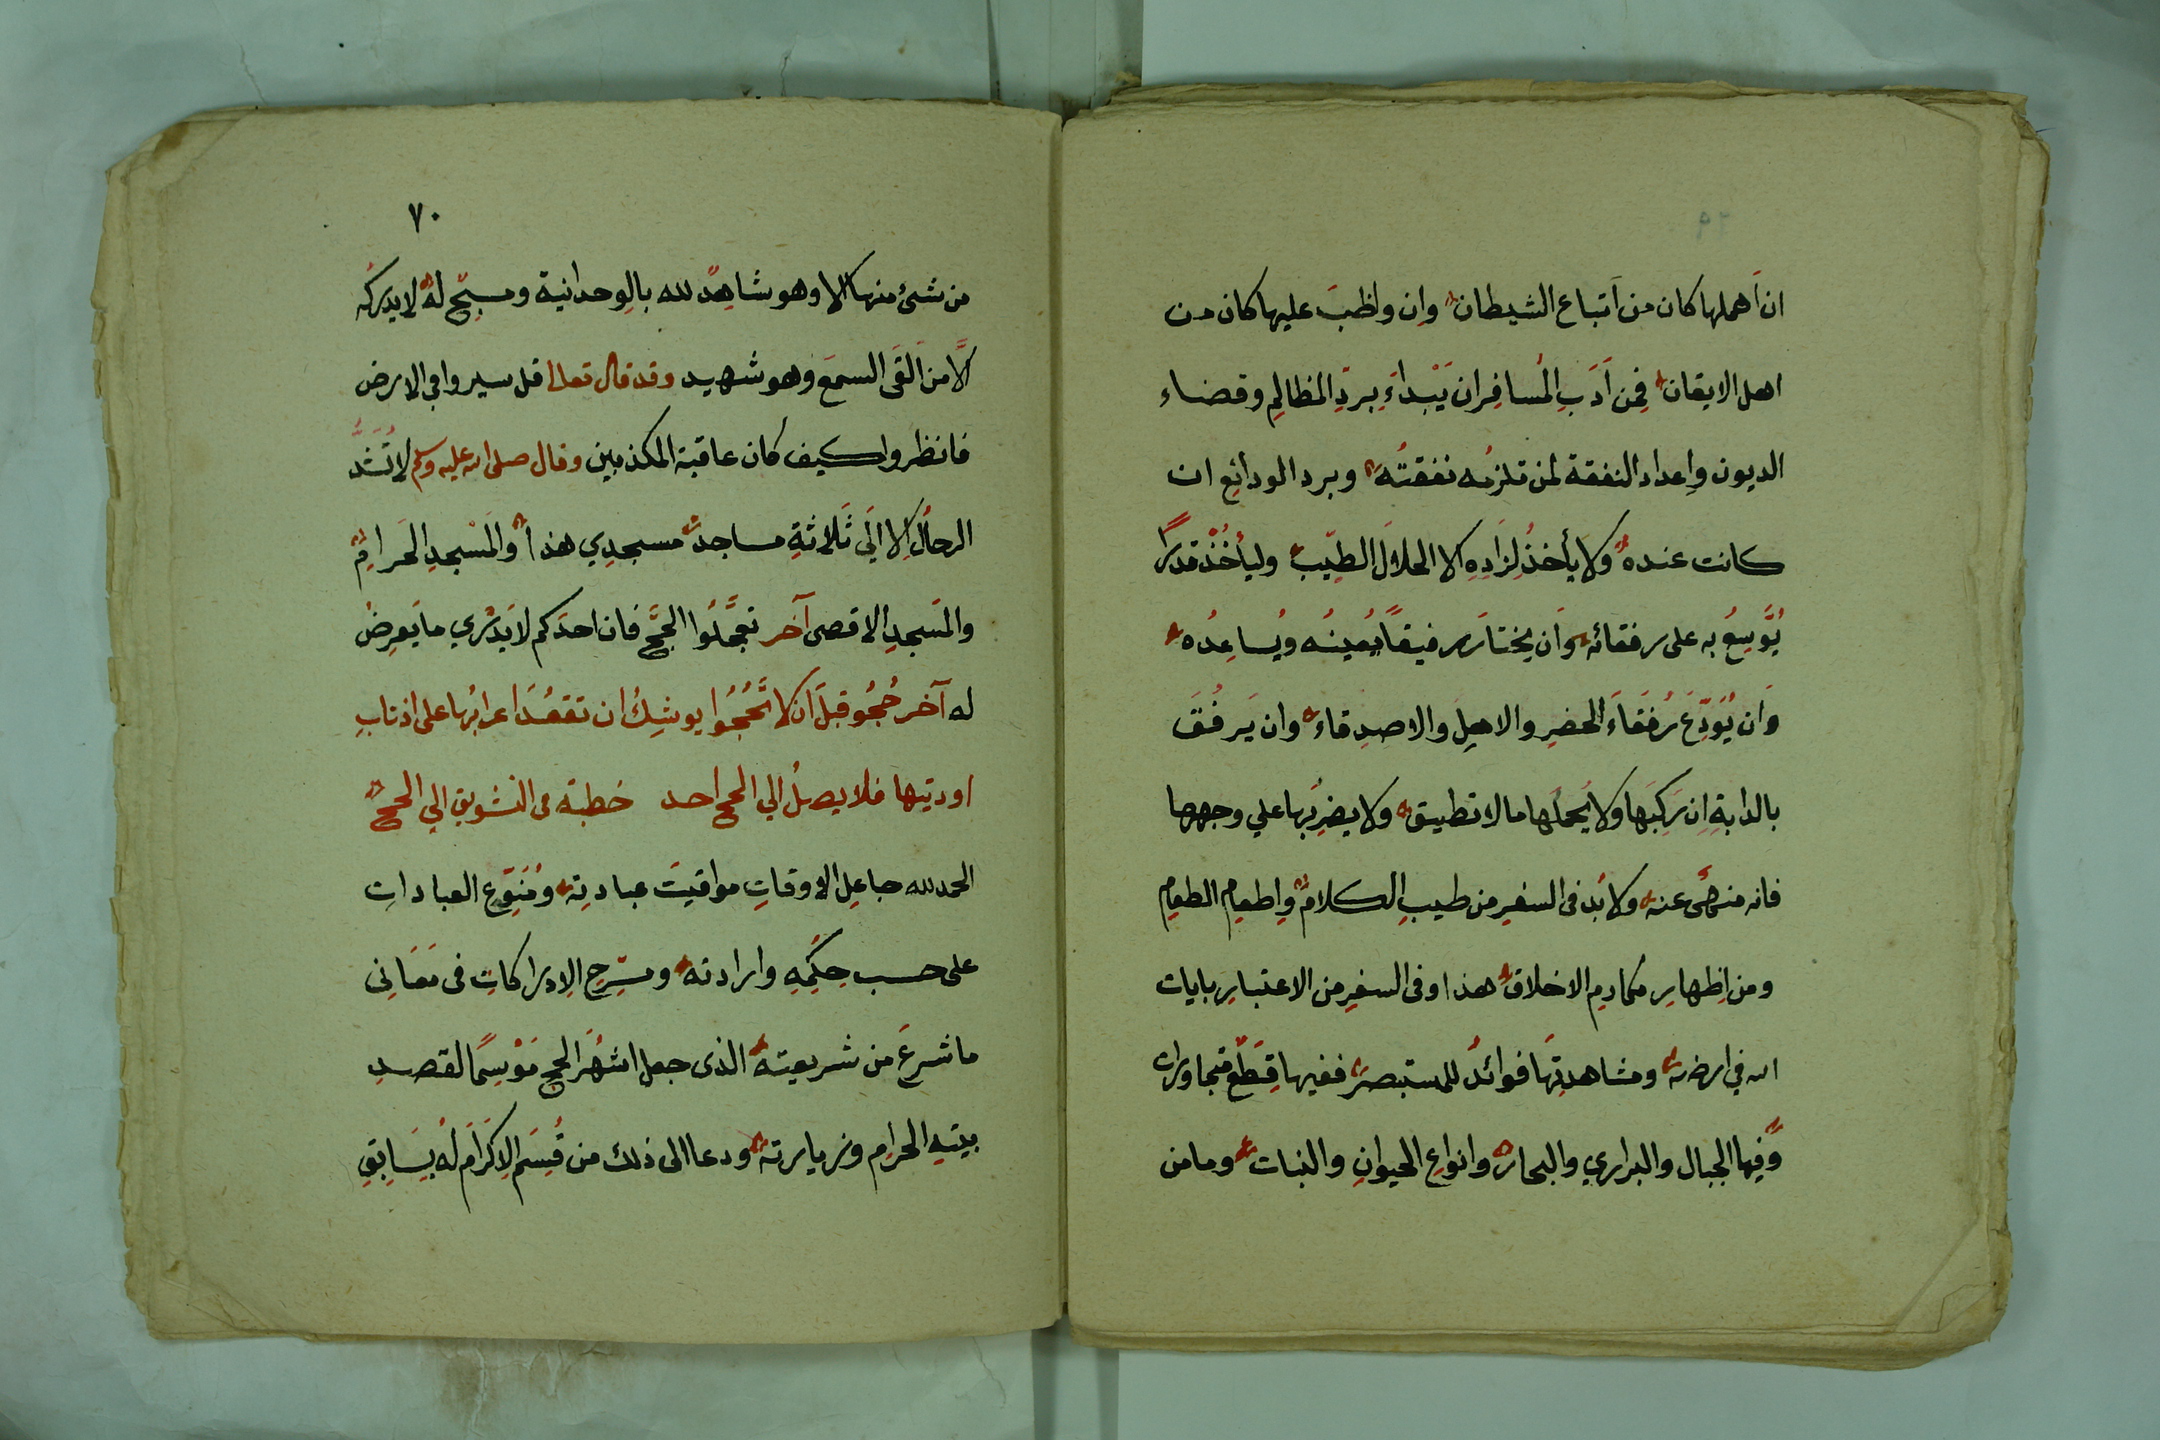 ان اَهملها كان من اَتباع الشيطان وان واظبَ عليها كان من
اهل الايقان فمِن اَدَبِ المُسافِر ان يَبْداءَ بِردِ المظالِم وقضاء
الديون وإعداد النفقة لمن تلزمُه نفقتُه وبرد الودائع ان
كانت عنده ولا يأخذُ لِزَادِهِ الا الحلالَ الطيّب وليأخُذْ قدرًا
يُوَّسِعُ به على رفقائه وَان يختارَ رفيقاً يُعينُه ويُساعِدُه
وَان يُوَدِّعَ رُفقَاءَ الحضرِ والاهلِ والاصدِقاء وان يَرفُقَ
بالدابةِ اِن رَكِبَها ولا يُحملَها مالا تطيق ولا يضرِبُها علي وجهها
فانه منهىٌ عنه ولابُد فى السفرِ من طيبِ الكلام وإطعام الطعام
ومن اِظهارِ مكارِم الاخلاق هذا وفى السفرِ من الاعتبارِ بايات
الله في ارضه ومشاهدتِها فوائدُ للمستبصر ففيها قِطَعٌ متجاورات
وفيها الجبال والبراري والبحار وانواع الحيوانِ والنبات وما من
٧٠
من شئ منها الا وهو شاهِدٌ لله بالوحدانية ومسبّح له لا يدركُه
الَّا من اَلقَى السمعَ وهو شهيد وقد قال تعالا قل سيروا في الارض
فانظروا كيف كان عاقبة المكذبين وقال صلى الله عليه وسلم لا تُشَدُّ
الرحالُ اِلا اِلَى ثَلاثةِ مساجد مسجدِي هذا والمَسْجدِ الحَرامِ
والمَسجدِ الاقصى آخر تعجَّلُوا الحجَّ فان احدَكم لا يَدْري ما يَعرِضُ
له آخر حُجُو قبلَ اَن لا تَحُجُوا يوشِكُ ان تقعُدَ اعرابُها على اذنابِ
اوديتها فلا يصلُ الي الحج احد خطبة فى التشويق الي الحج
الحمد لله جاعِل الاوقاتِ مواقيتَ عبادتِه ومُنَوِّعِ العباداتِ
على حسب حِكَمِهِ وارادته ومسَرِّح الاِدراكاتِ فى مَعَانِى
ما شرعَ من شريعته الذى جعل اشهُرَ الحج مَوْسِمًا لقصدِ
بيتهِ الحرامِ وزيارته ودعا الى ذلك من قُسِمَ الاِكرَامُ لهُ بِسَابِقِ